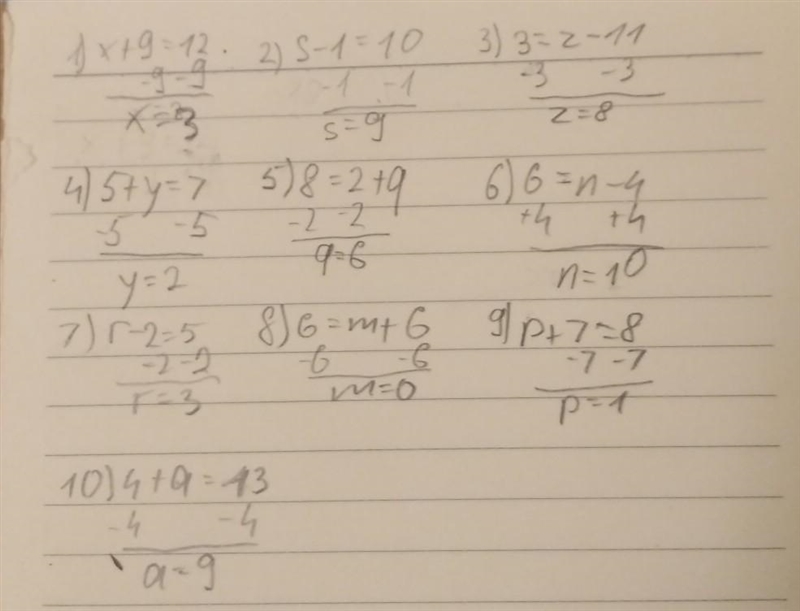 1) x+9=12. 2) S-1=10 3) 3=z-11
-9 -9 -1 -1 -3 -3
x=3 s=9 z=8
4) 5+y=7 5) 8=2+q 6) 6=n-4
-5 -5 -2 -2 +4 +4
y=2 q=6 n=10
7) r-2=5 8) 6=m+6 9) p+7=8
-2-2 -6 -6 -7 -7
r=3 m=0 p=1
10) 4+a=13
-4 -4
a=9